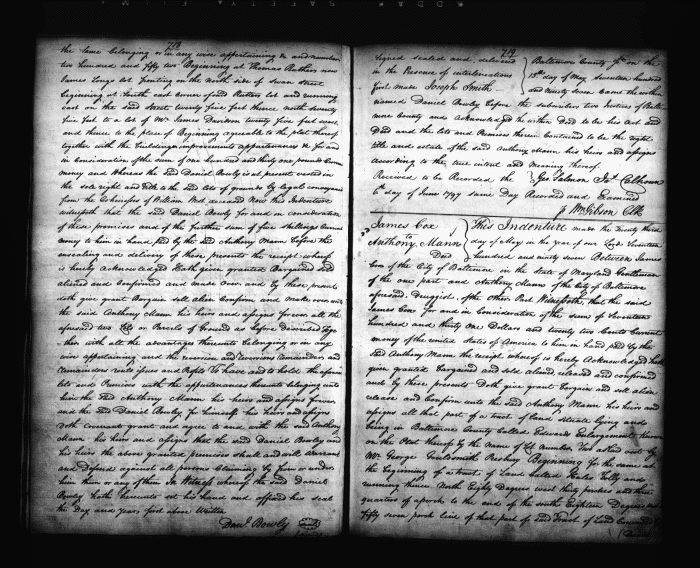 718
the same belonging or in any wise appertaining &c and number
two hundred and fifty two Beginning at Thomas Rutters now
James Longs lot fronting on the north side of swan street
beginning at south east corner of said Rutters lot and running
east on the said street twenty five feet thence north seventy
five feet to a lot of Mr. James Davidson twenty five feet west
and thence to the place of Beginning agreeable to the plat thereof
together with the buildings improvements appurtenances &c for and
in Consideration of the sum of one hundred and thirty one pounds Curr
money and Whereas the said Daniel Bowly is at present vested in
the sole right and title to the said lots of grounds by legal conveyance
from the of William deceased Now this Indenture
witnesseth that the said Daniel Bowly for and in consideration
of these promises and of the further sum of five shillings Current
money to him in hand paid by the said Anthony Mann before the
ensealing and delivery of these presents the receipt whereof
is hereby acknowledged Hath given granted Bargained Sold
aliened and Confirmed and made Over and by these presents
doth give grant Bargain sell alien Confirm and make over unto
the said Anthony Mann his heirs and assigns forever all the
aforesaid two Lots or Parcels of Ground as before described Toge
ther with all the advantages thereunto belonging or in any
wise appertaining and the reversion and reversions remainder and
Remainders rents issues and Profits To have and to hold the aforesaid
lots and Premises with the appurtenances thereunto belonging unto
him the said Anthony Mann his heirs and assigns forever
and the said Daniel Bowly for himself his heirs and assigns
doth Covenant grant and agree to and with the said Anthony
Mann his heirs and assigns that the said Daniel Bowly and
his heirs the above granted premises shall and will Warrant
and Defend against all persons Claiming by from or under
him them or any of them In Witness whereof the said Daniel
Bowly hath hereunto set his hand and affixed his seal
the Day and years first above Written
Danl. Bowly Seal
719
Signed sealed and delivered
in the Presence of interlineations
first made Joseph Smith
Baltimore County Js. on the
15th day of May Seventeen hundred
and Ninety Seven Came the within
named Daniel Bowly before the subscribers two Justices of Balti
more County and Acknowledged the within Deed to be his Act and
Deed and the lots and Premises therein Contained to be the right
title and estate of the said Anthony Mann his heirs and assigns
according to the true intent and Meaning thereof.
Received to be Recorded the Geo Salmon Js. Calhoun
6th day of June 1797 same Day Recorded and Examined
Wm Gibson Clk
James Cox
to
Anthony Mann
Deed
This Indenture made the Twenty third
day of May in the year of our Lord Seventeen
hundred and ninety seven Between James
Cox of the City of Baltimore in the State of Maryland Gentleman
of the one part and Anthony Mann of the City of Baltimore
aforesaid, Druggist, of the other Part Witnesseth, that the said
James Cox for and in Consideration of the sum of Seventeen
hundred and thirty one Dollars and twenty two Cents Current
money of the united States of America to him in hand paid by the
said Anthony Mann the receipt whereof is hereby Acknowledged hath
given granted bargained and sold aliened released and confirmed
and by these presents Doth give grant Bargain and sell alien
release and Confirm unto the said Anthony Mann his heirs and
assigns all that part of a tract of land situate lying and
being in Baltimore County Called Edwards Enlargement, known
on the Plat thereof by the name of Lot number Two as laid out by
Mr. George Beginning for the same at
the beginning of a tract of Land called Gales Folly and
running thence North Eighty Degrees west thirty perches and three
quarters of a perch to the end of the south Eighteen Degrees and
fifty seven perch line of that part of said Tract of Land Conveyed